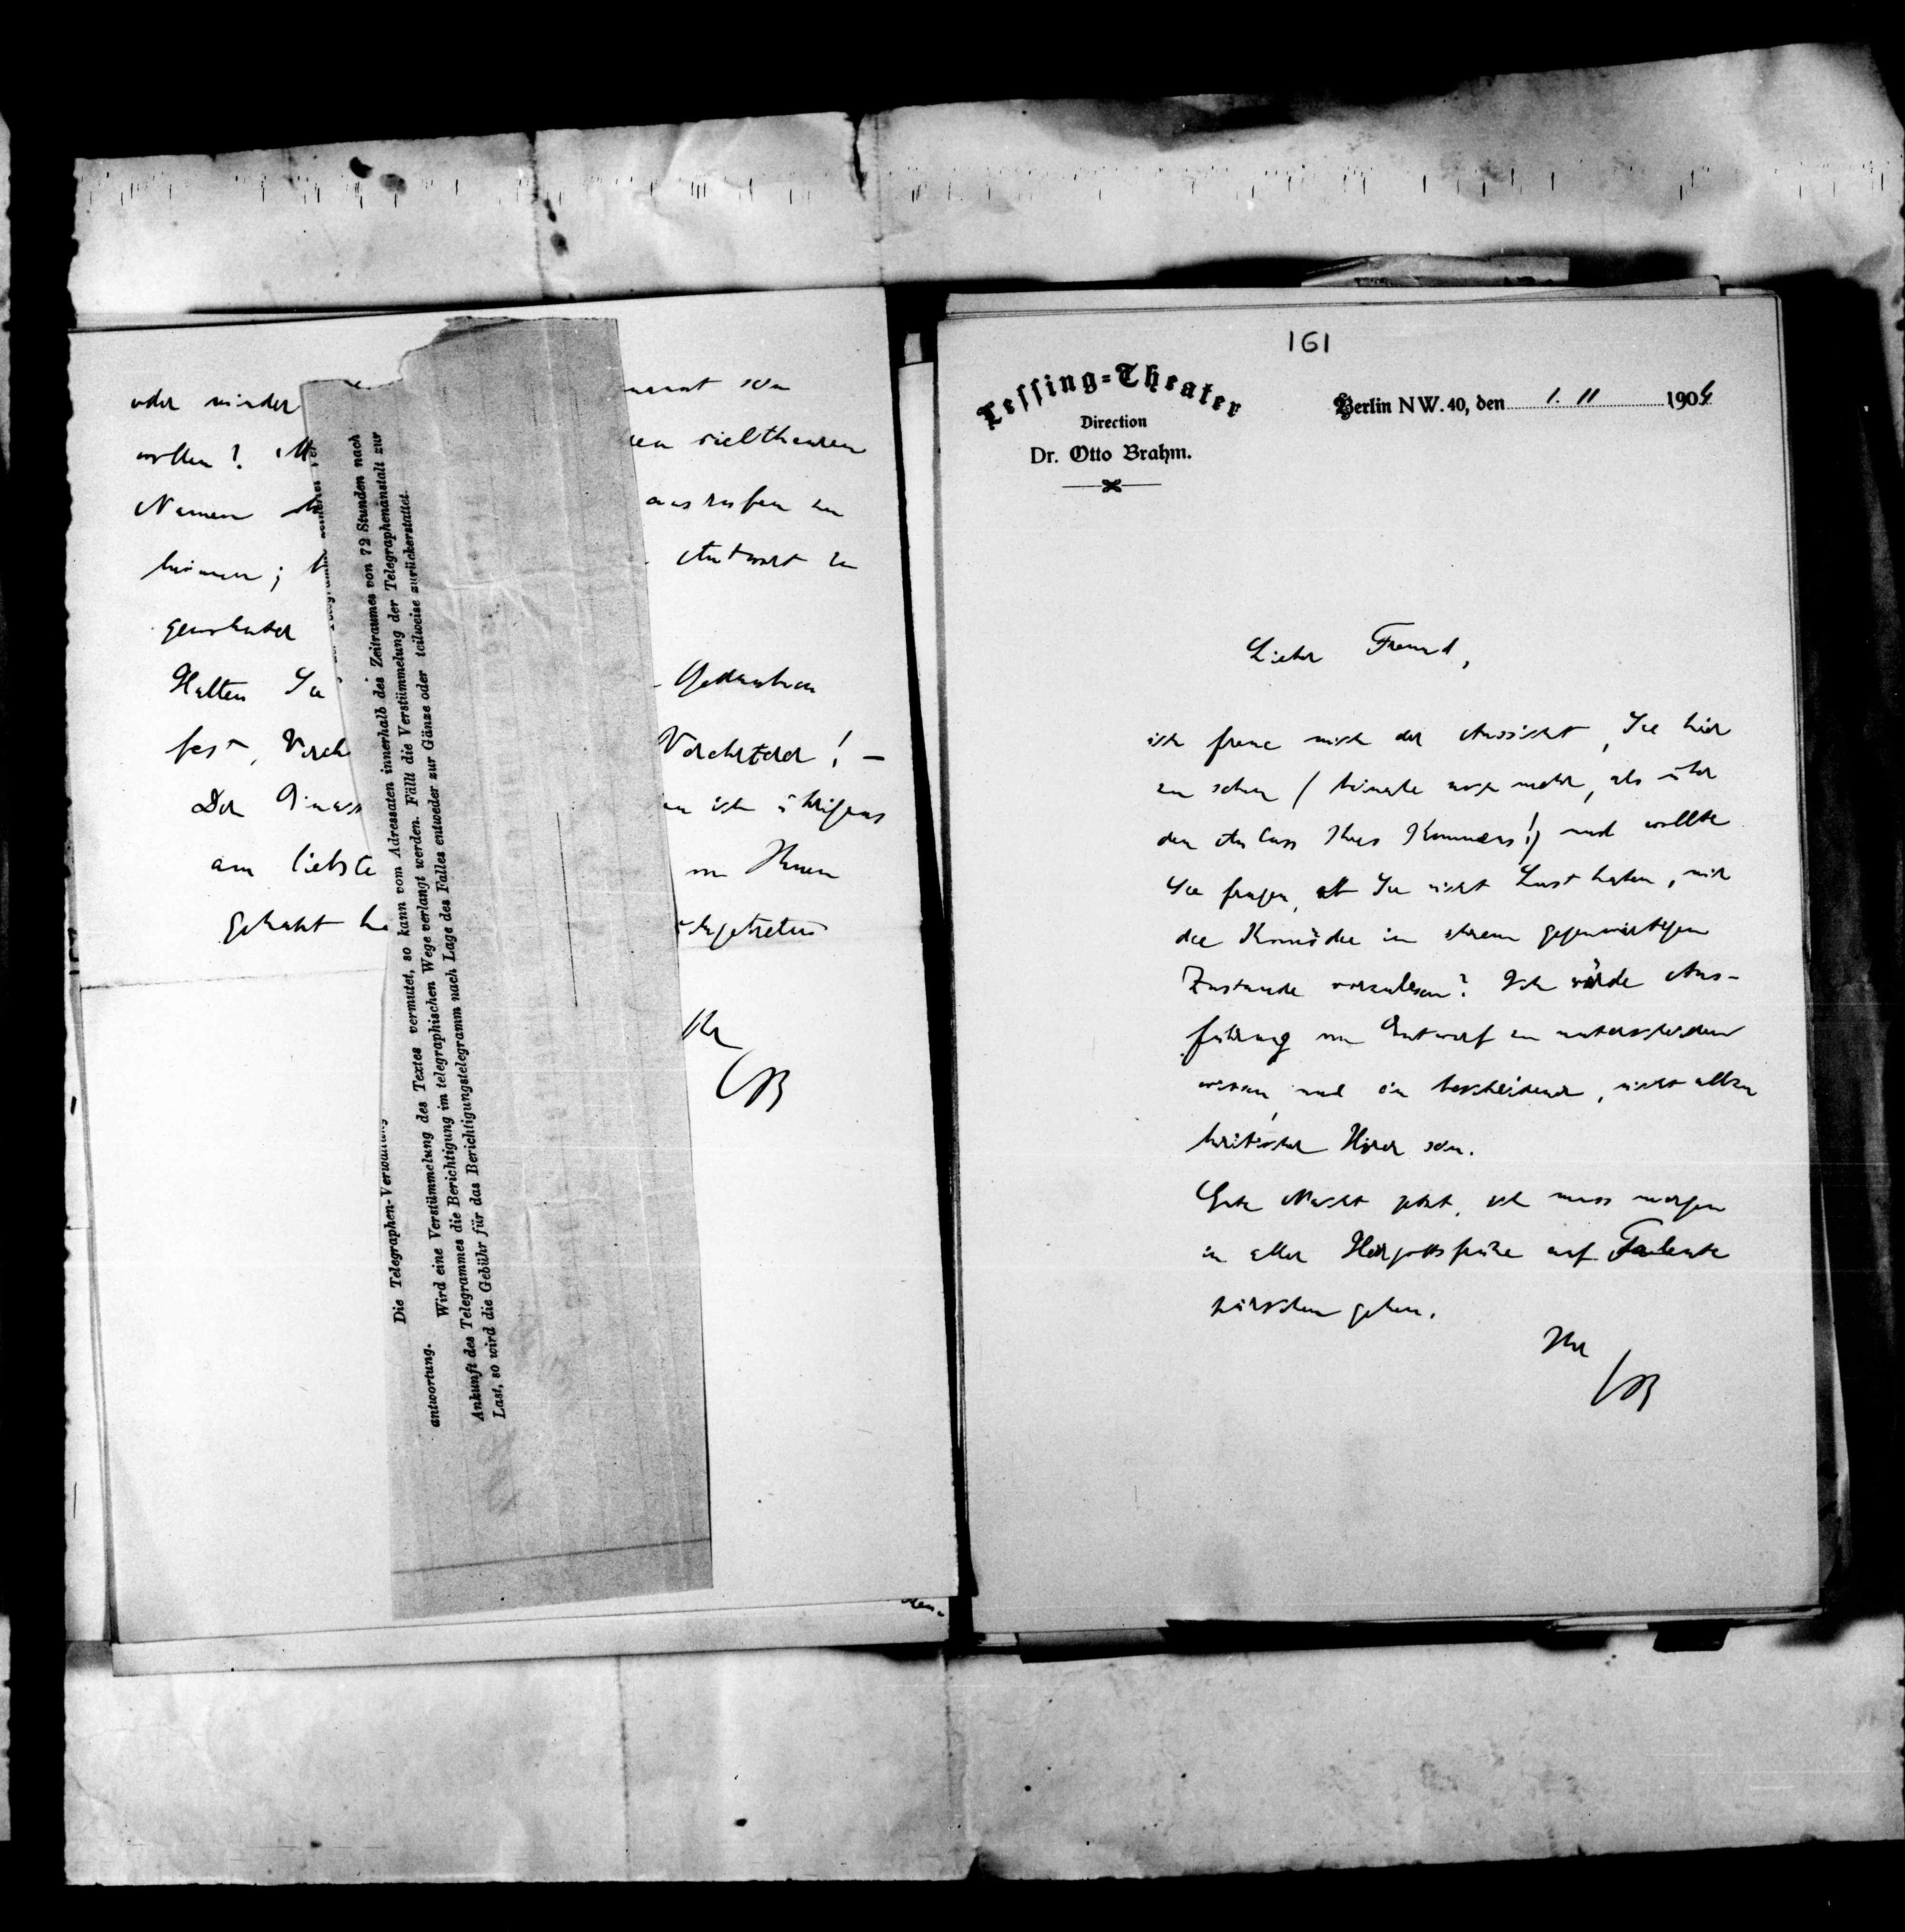 oder minder
wollen?
Namen
können;
gewohnter
Halten Sie
fest, Vereh
Der
am liebste
gehabt ha
sein
vieltheuren
ausrufen zu
Antwort in
Gedanken
Verehrter! –
ich übrigens
von Ihnen
Ihr
OB
Die Telegraphen-Verwaltung
antwortung.
Wird eine Verstümmelung des Textes vermutet, so kann vom Adressaten innerhalb des Zeitraumes von 72 Stunden nach
Ankunft des Telegrammes die Berichtigung im telegraphischen Wege verlangt werden. Fällt die Verstümmelung der Telegraphenanstalt zur
Last, so wird die Gebühr für das Berichtigungstelegramm nach Lage des Falles entweder zur Gänze oder teilweise zurückerstattet.
161
Lessing-Theater
Direction
Dr. Otto Brahm.
Berlin NW. 40, den 1. 11 1904
Lieber Freund,
ich freue mich der Aussicht, Sie hier
zu sehen (beinahe noch mehr, als über
den Anlass Ihres Kommens!) und wollte
Sie fragen, ob Sie nicht Lust haben, mir
die Komödie in ihrem gegenwärtigen
Zustande vorzulesen? Ich würde Aus-
führung von Entwurf zu unterscheiden
wissen, und ein bescheidener, nicht allzu
kritischer Hörer sein.
Gute Nacht jetzt, ich muss morgen
in aller Herrgottsfrühe auf Talente
pürschen gehen.
Ihr
OB